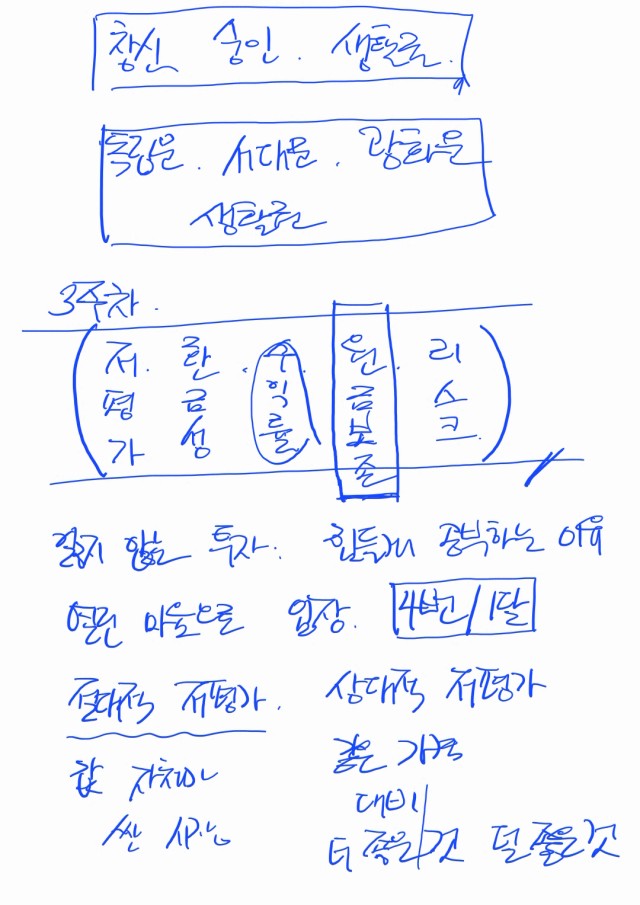 창신 숭인. 생활권.
독립문. 서대문. 광화문
생활권
3주차.
저평가. 환금성. 수익률 원금보존. 리스크.
잃지 않는 투자. 힘들게 공부하는 이유
열린 마음으로 입장. 4번/1달
절대적 저평가. 상대적 저평가
값 자체가 같은 가격
싼 시기 대비
더 좋은것 덜 좋은것